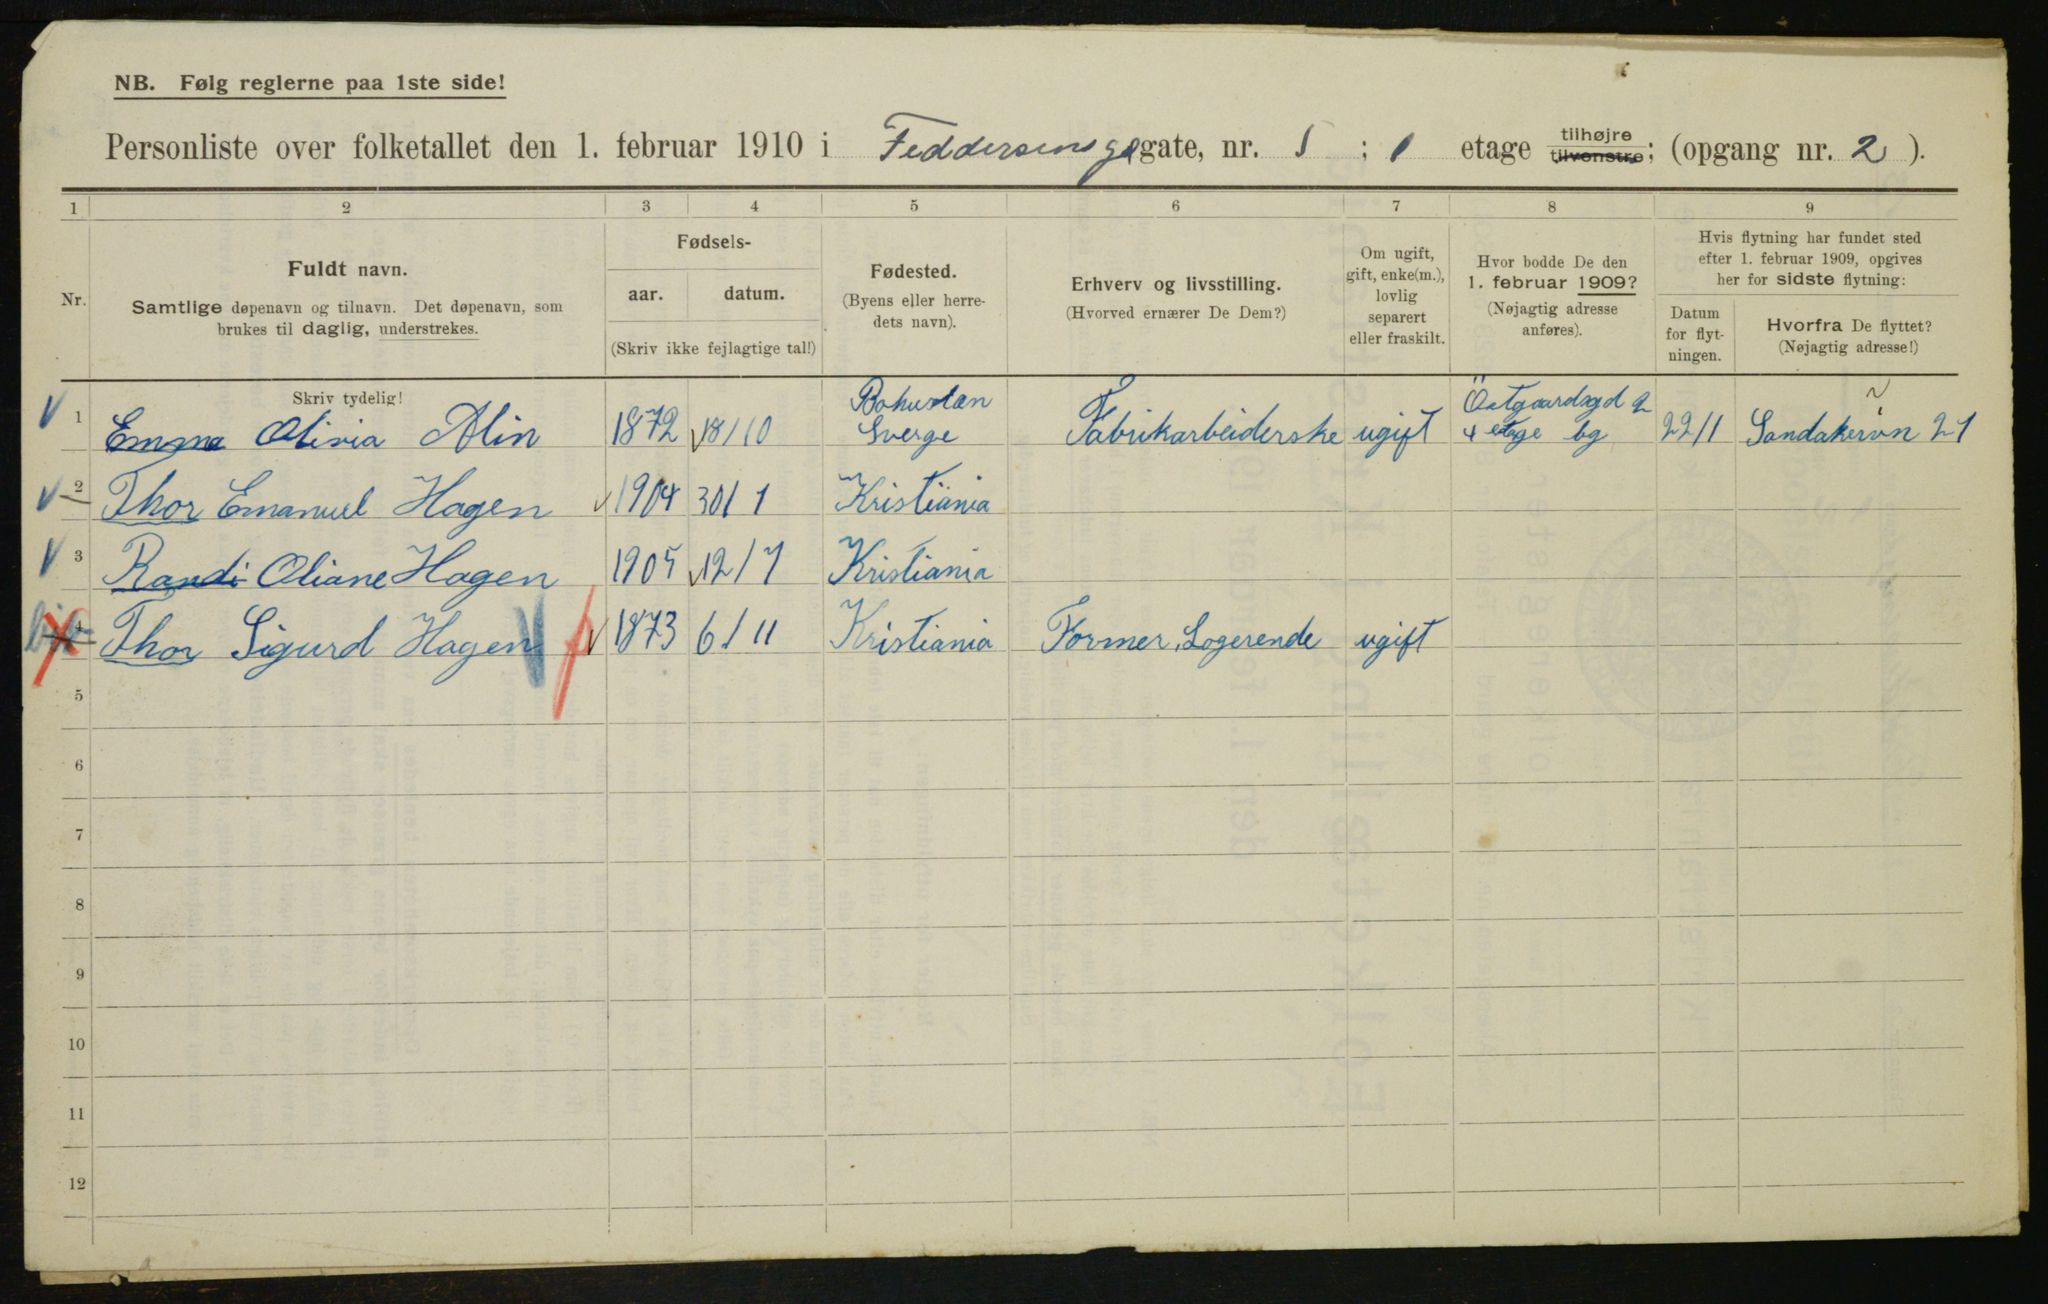 NB. Følg reglerne paa 1ste side!
Personliste over folketallet den 1. februar 1910 i Feddersensgagate, nr. 1 ; 1 etage tilhøjre tilvenstre; (opgang nr. 2 ).
1 2 3 4 5 6 7 8 9
Nr.
Fuldt navn.
Samtlige døpenavn og tilnavn. Det døpenavn, som
brukes til daglig, understrekes.
Fødsels-
aar. datum.
(Skriv ikke fejlagtige tal!)
Fødested.
(Byens eller herre-
dets navn).
Erhverv og livsstilling.
(Hvorved ernærer De Dem?)
Om ugift,
gift, enke(m.),
lovlig
separert
eller fraskilt.
Hvor bodde De den
1. februar 1909?
(Nøjagtig adresse
anføres).
Hvis flytning har fundet sted
efter 1. februar 1909, opgives
her for sidste flytning:
Datum
for flyt-
ningen.
Hvorfra De flyttet?
(Nøjagtig adresse!)
Skriv tydelig!
1 Emma Olivia Alin 1872 18/10 Bohuslæn Sverge Fabrikarbeiderske ugift Östgaardsgd 2 4 etage bg 22/1 Sandakervn 21
2 Thor Emanuel Hagen 1904 30/1 Kristiania
3 Randi Oliane Hagen 1905 12/7 Kristiania
4 Thor Sigurd Hagen 1873 6/11 Kristiania Former, Logerende ugift
5
6
7
8
9
10
11
12